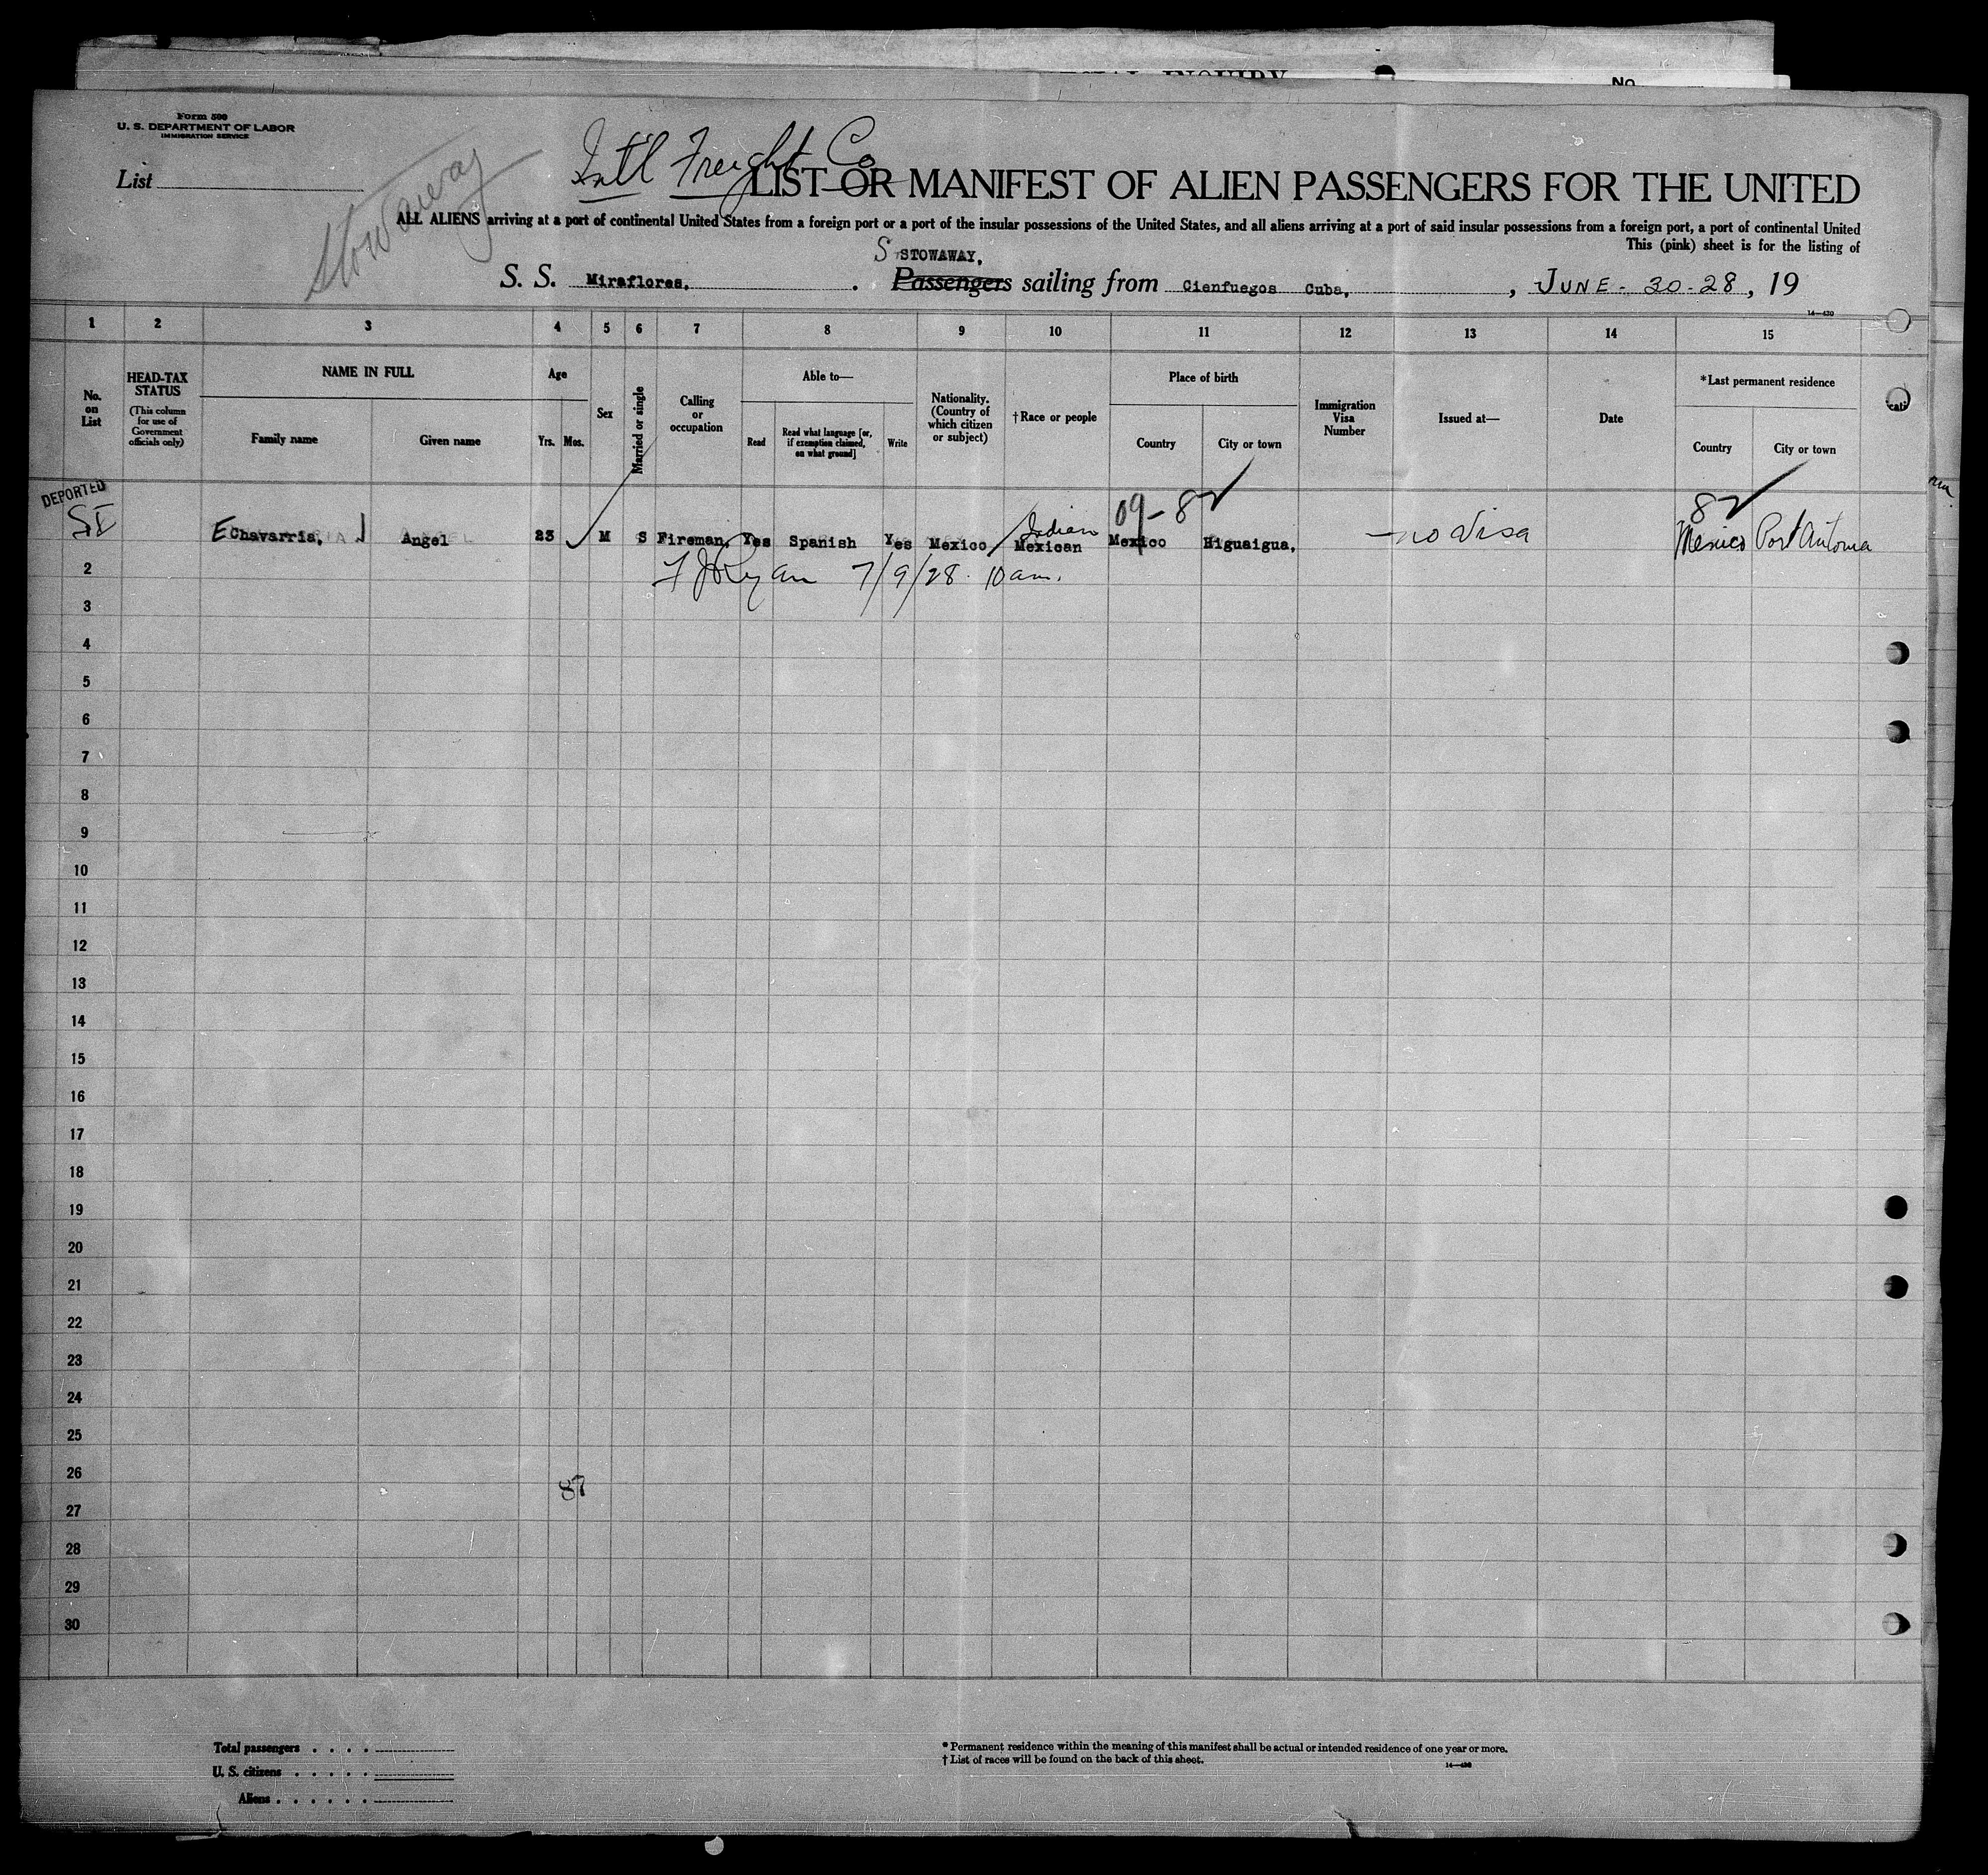 No
Form 500
U. S. DEPARTMENT OF LABOR
IMMIGRATION SERVICE
List
Stowaway
Int'l Freight Co
LIST OR MANIFEST OF ALIEN PASSENGERS FOR THE UNITED
ALL ALIENS arriving at a port of continental United States from a foreign port or a port of the insular possessions of the United States, and all aliens arriving at a port of said insular possessions from a foreign port, a port of continental United
This (pink) sheet is for the listing of
S STOWAWAY,
S. S. Miraflores, Passengers sailing from Cienfuegos Cuba, , JUNE - 30-28, 19
14—430
1 2 3 4 5 6 7 8 9 10 11 12 13 14 15
No. on List
HEAD-TAX STATUS
(This column for use of Government officials only)
NAME IN FULL
Family name
Given name
Age
Yrs. Mos.
Sex
Married or single
Calling or occupation
Able to—
Read
Read what language [or, if exemption claimed, on what ground]
Write
Nationality. (Country of which citizen or subject)
†Race or people
Place of birth
Country
City or town
Immigration Visa Number
Issued at—
Date
*Last permanent residence
Country
City or town
DEPORTED
SI
09-8 82
Indian
Echavarria, Angel 23 M S Fireman, Yes Spanish Yes Mexico Mexican Mexico Higuaigua, no visa Mexico Port Antonia
F J Ryan 7/9/28 10 am.
2
3
4
5
6
7
8
9
10
11
12
13
14
15
16
17
18
19
20
21
22
23
24
25
26
87
27
28
29
30
Total passengers . . . .
U. S. citizens . . . . .
Aliens . . . . . .
* Permanent residence within the meaning of this manifest shall be actual or intended residence of one year or more.
† List of races will be found on the back of this sheet.
14—430